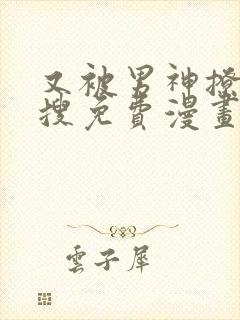 又被男神撩
搜免費漫畫
雲子犀